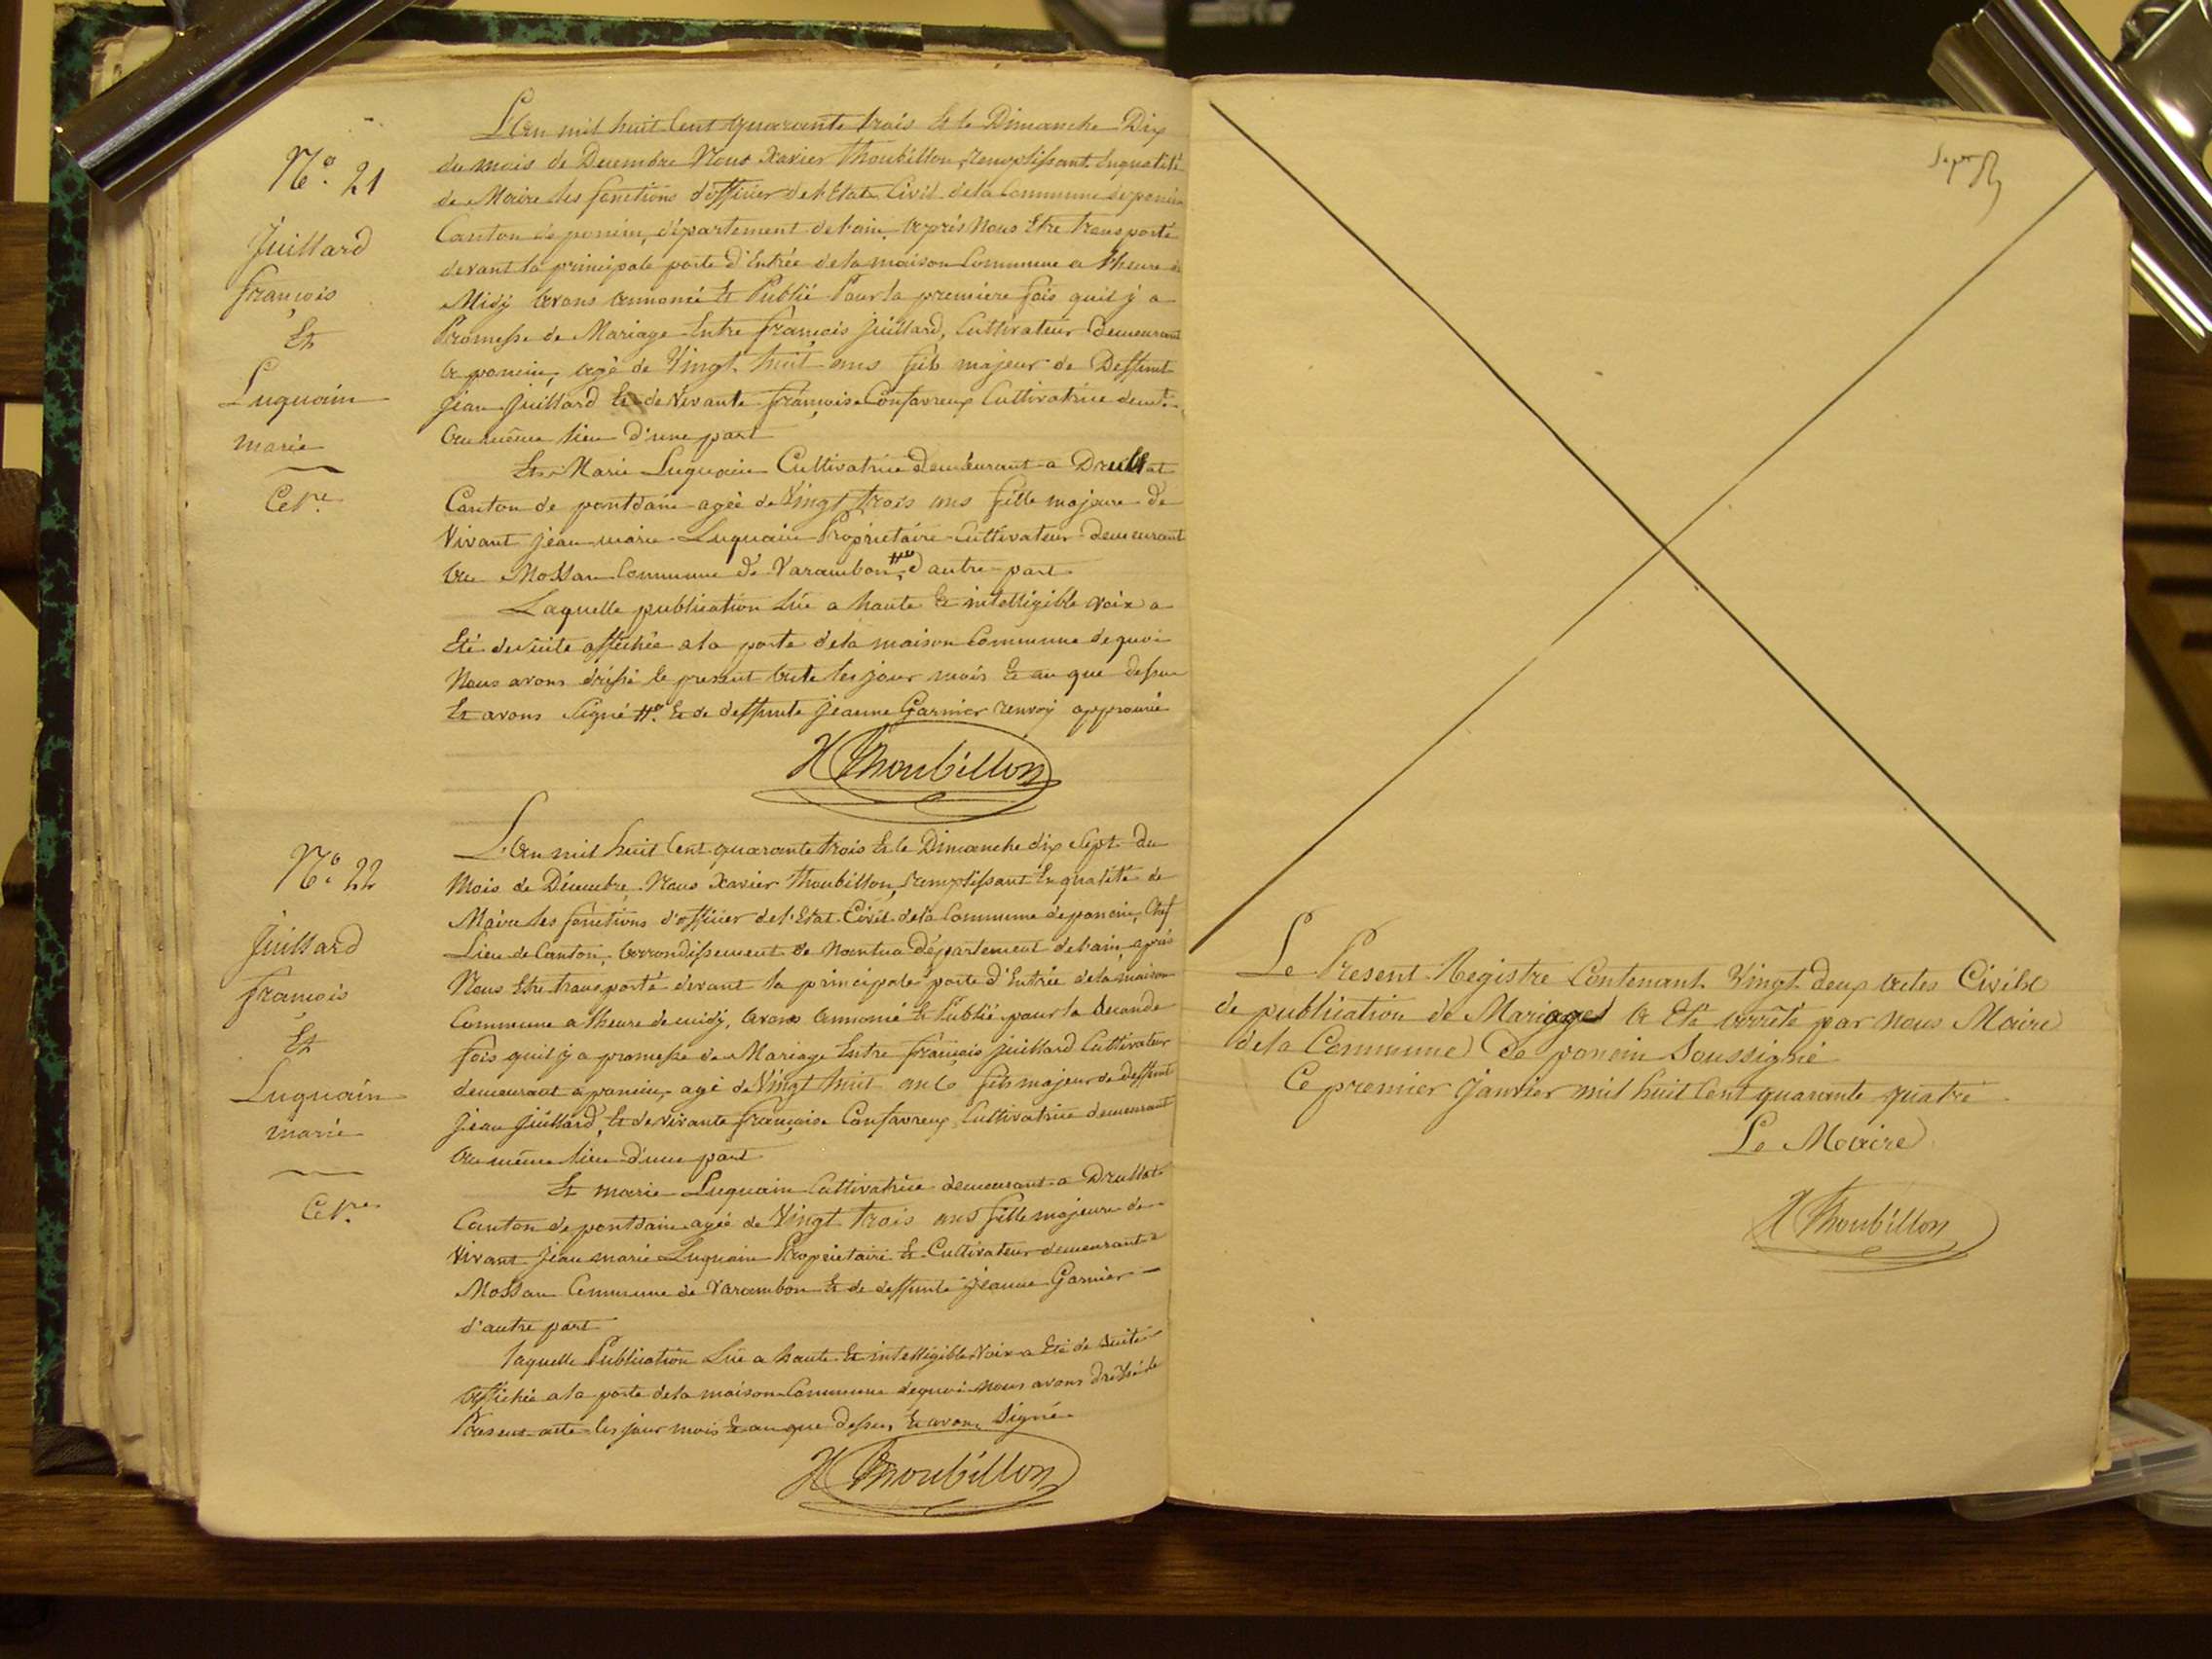 N.o 21
Juillard
françois
Et
Luquain
marie
Cer.re
L'An mil huit Cent quarante trois Et le Dimanche Dix
du mois de Decembre Nous Xavier Thoubillon, remplissant Enqualité
de Maire les fonctions d'officier de l'Etat Civil dela Commune de poncin
Canton de poncin, département de l'ain, Après Nous Etre transporté
devant la principale porte d'Entrée dela maison Commune a l'heure de
Midy Avons Annoncé Et Publié Pour la premiere fois quil y a
Promesse de Mariage Entre françois Juillard, Cultivateur Demeurant
A poncin, agé de Vingt huit ans fils majeur de Deffunt
Jean Juillard Et de Vivante françoise Confavreux Cultivatrice demt.
Au même lieu d'une part
Et Marie Luquain Cultivatrice demeurant a Druillat
Canton de pontdain agée de Vingt trois ans fille majeure de
Vivant jean marie Luquain Propriétaire Cultivateur demeurant
Au Mossan Commune de Varambon #o, d'autre part
Laquelle publication Lüe a haute Et intelligible voix a
Eté desuite affichée ala porte dela maison Commune dequoi
Nous avons dréssé le present Acte les jour mois Et an que dessus
Et avons signé #o. Et de deffunte Jeanne Garnier renvoy approuvé
X Thoubillon
N.o 22
Juillard
françois
Et
Luquain
marie
Cer.re
L'An mil huit Cent quarante trois Et le Dimanche dix Sept du
Mois de Décembre Nous Xavier Thoubillon, remplissant En qualité de
Maire les fonctions d'officier de l'Etat Civil dela Commune de poncin, Chef
Lieu de Canton, Arrondissement de Nantua Département de l'ain, après
Nous Etre transporté devant la principale porte d'Entrée dela maison
Commune a l'heure de midy, Avons Annoncé Et Publié pour la Seconde
fois quil y a promesse de Mariage Entre françois Juillard Cultivateur
demeurant a poncin, agé de Vingt huit ans fils majeur de deffunt
Jean Juillard, Et de vivante françoise Confavreux, Cultivatrice demeurant
Au même lieu d'une part
Et marie Luquain Cultivatrice demeurant a Druillat
Canton de pontdain agée de Vingt trois ans fille majeure de
Vivant Jean marie Luquain Propriétaire Et Cultivateur demeurant a
Mossan Commune de Varambon Et de deffunte Jeanne Garnier
d'autre part
laquelle Publication Lüe a haute Et intelligible Voix a Eté de suite
Affichée ala porte dela maison Commune dequoi nous avons dréssé le
Présent acte les jour mois Et an que dessus, Et avons Signé
X Thoubillon
Le Present Registre Contenant Vingt deux Actes Civils
de publication de Mariages A Eté Arrêté par Nous Maire
dela Commune De poncin Soussigné
Ce premier Janvier mil huit Cent quarante quatre
Le Maire
X Thoubillon